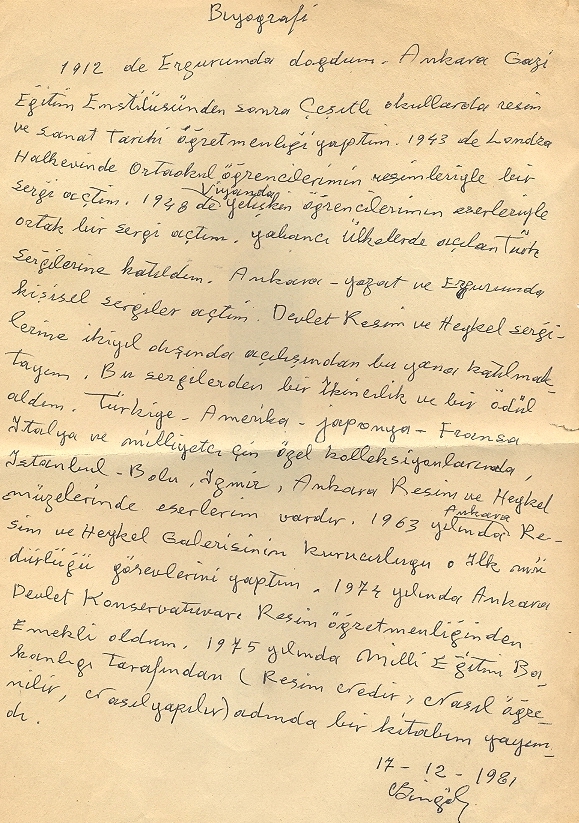 Biyografi
1912 de Erzurumda doğdum. Ankara Gazi
Eğitim Enstitüsünden sonra Çeşitli okullarda resim
ve sanat Tarihi öğretmenliği yaptım. 1943 de Londra
Halkevinde Ortaokul öğrencilerimin resimleriyle bir
sergi açtım. 1948 de Viyanada yetişkin öğrencilerimin eserleriyle
ortak bir sergi açtım. yabancı ülkelerde açılan Türk
Sergilerine katıldım. Ankara - yozat ve Erzurumda
kişisel sergiler açtım. Devlet Resim ve Heykel sergi-
lerine ikiyıl dışında açılışından bu yana katılmak-
tayım. Bu sergilerden bir İkincilik ve bir ödül
aldım. Türkiye - Amerika - japonya - Fransa
İtalya ve milliyetçi Çin özel kolleksiyonlarında,
İstanbul - Bolu, İzmir, Ankara Resim ve Heykel
müzelerinde eserlerim vardır. 1963 yılında Ankara Re-
sim ve Heykel Galerisinin kuruculuğu, İlk mü-
dürlüğü görevlerini yaptım. 1974 yılında Ankara
Devlet Konservatuvarı Resim öğretmenliğinden
Emekli oldum. 1975 yılında Milli Eğitim Ba-
kanlığı Tarafından (Resim Nedir, Nasıl öğre-
nilir, Nasılyapılır) adında bir kitabım yayım-
dı.
17 - 12 - 1981
CBingöl